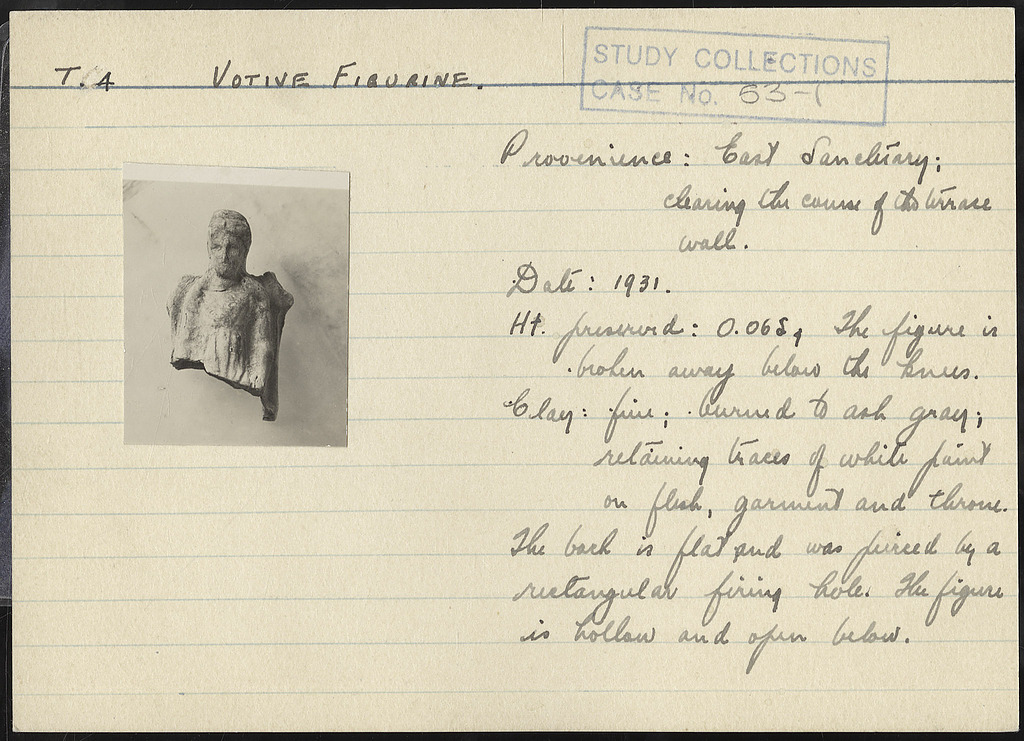 T. 4 VOTIVE FIGURINE.
STUDY COLLECTIONS
CASE No. 63-1
Provenience: East Sanctuary;
clearing the course of the terrace
wall.
Date: 1931.
Ht. preserved: 0.065, The figure is
broken away below the knees.
Clay: fine; burned to ash gray;
retaining traces of white paint
on flesh, garment and throne.
The back is flat and was pierced by a
rectangular firing hole. The figure
is hollow and open below.